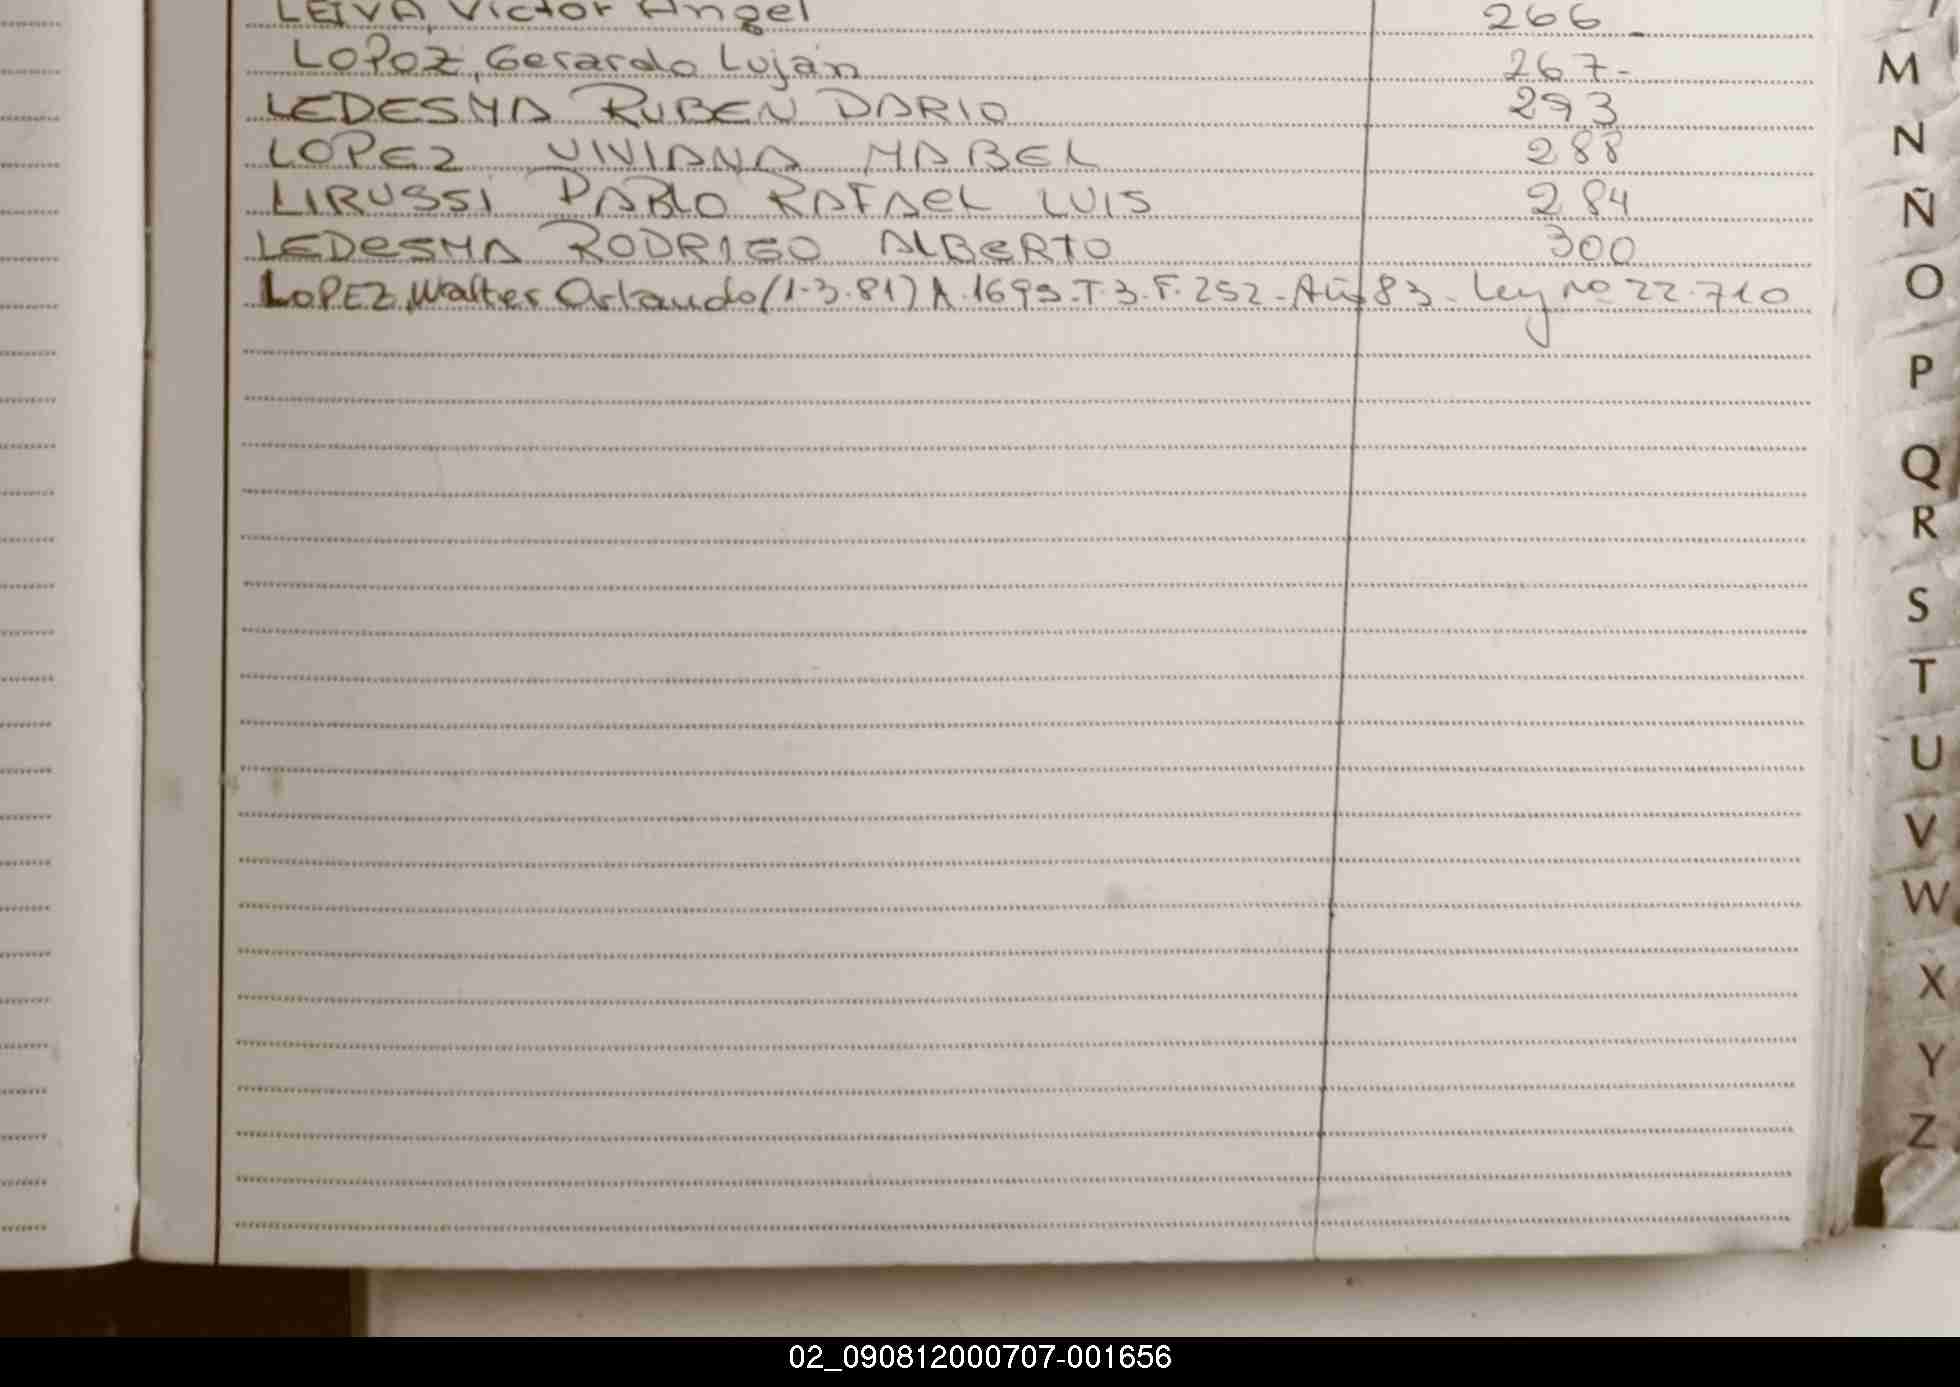 LEIVA, Victor Angel 266_
LOPOZ, Gerardo Luján 267-
LEDESMA RUBEN DARIO 293
LOPEZ VIVIANA MABEL 288
LIRUSSI PABLO RAFAEL LUIS 284
LEDESMA RODRIGO ALBERTO 300
LOPEZ, Walter Orlando (1-3-81) A. 1699-T.3-F.252-Año 83-Ley no 22.710
M
N
Ñ
O
P
Q
R
S
T
U
V
W
X
Y
Z
02_090812000707-001656